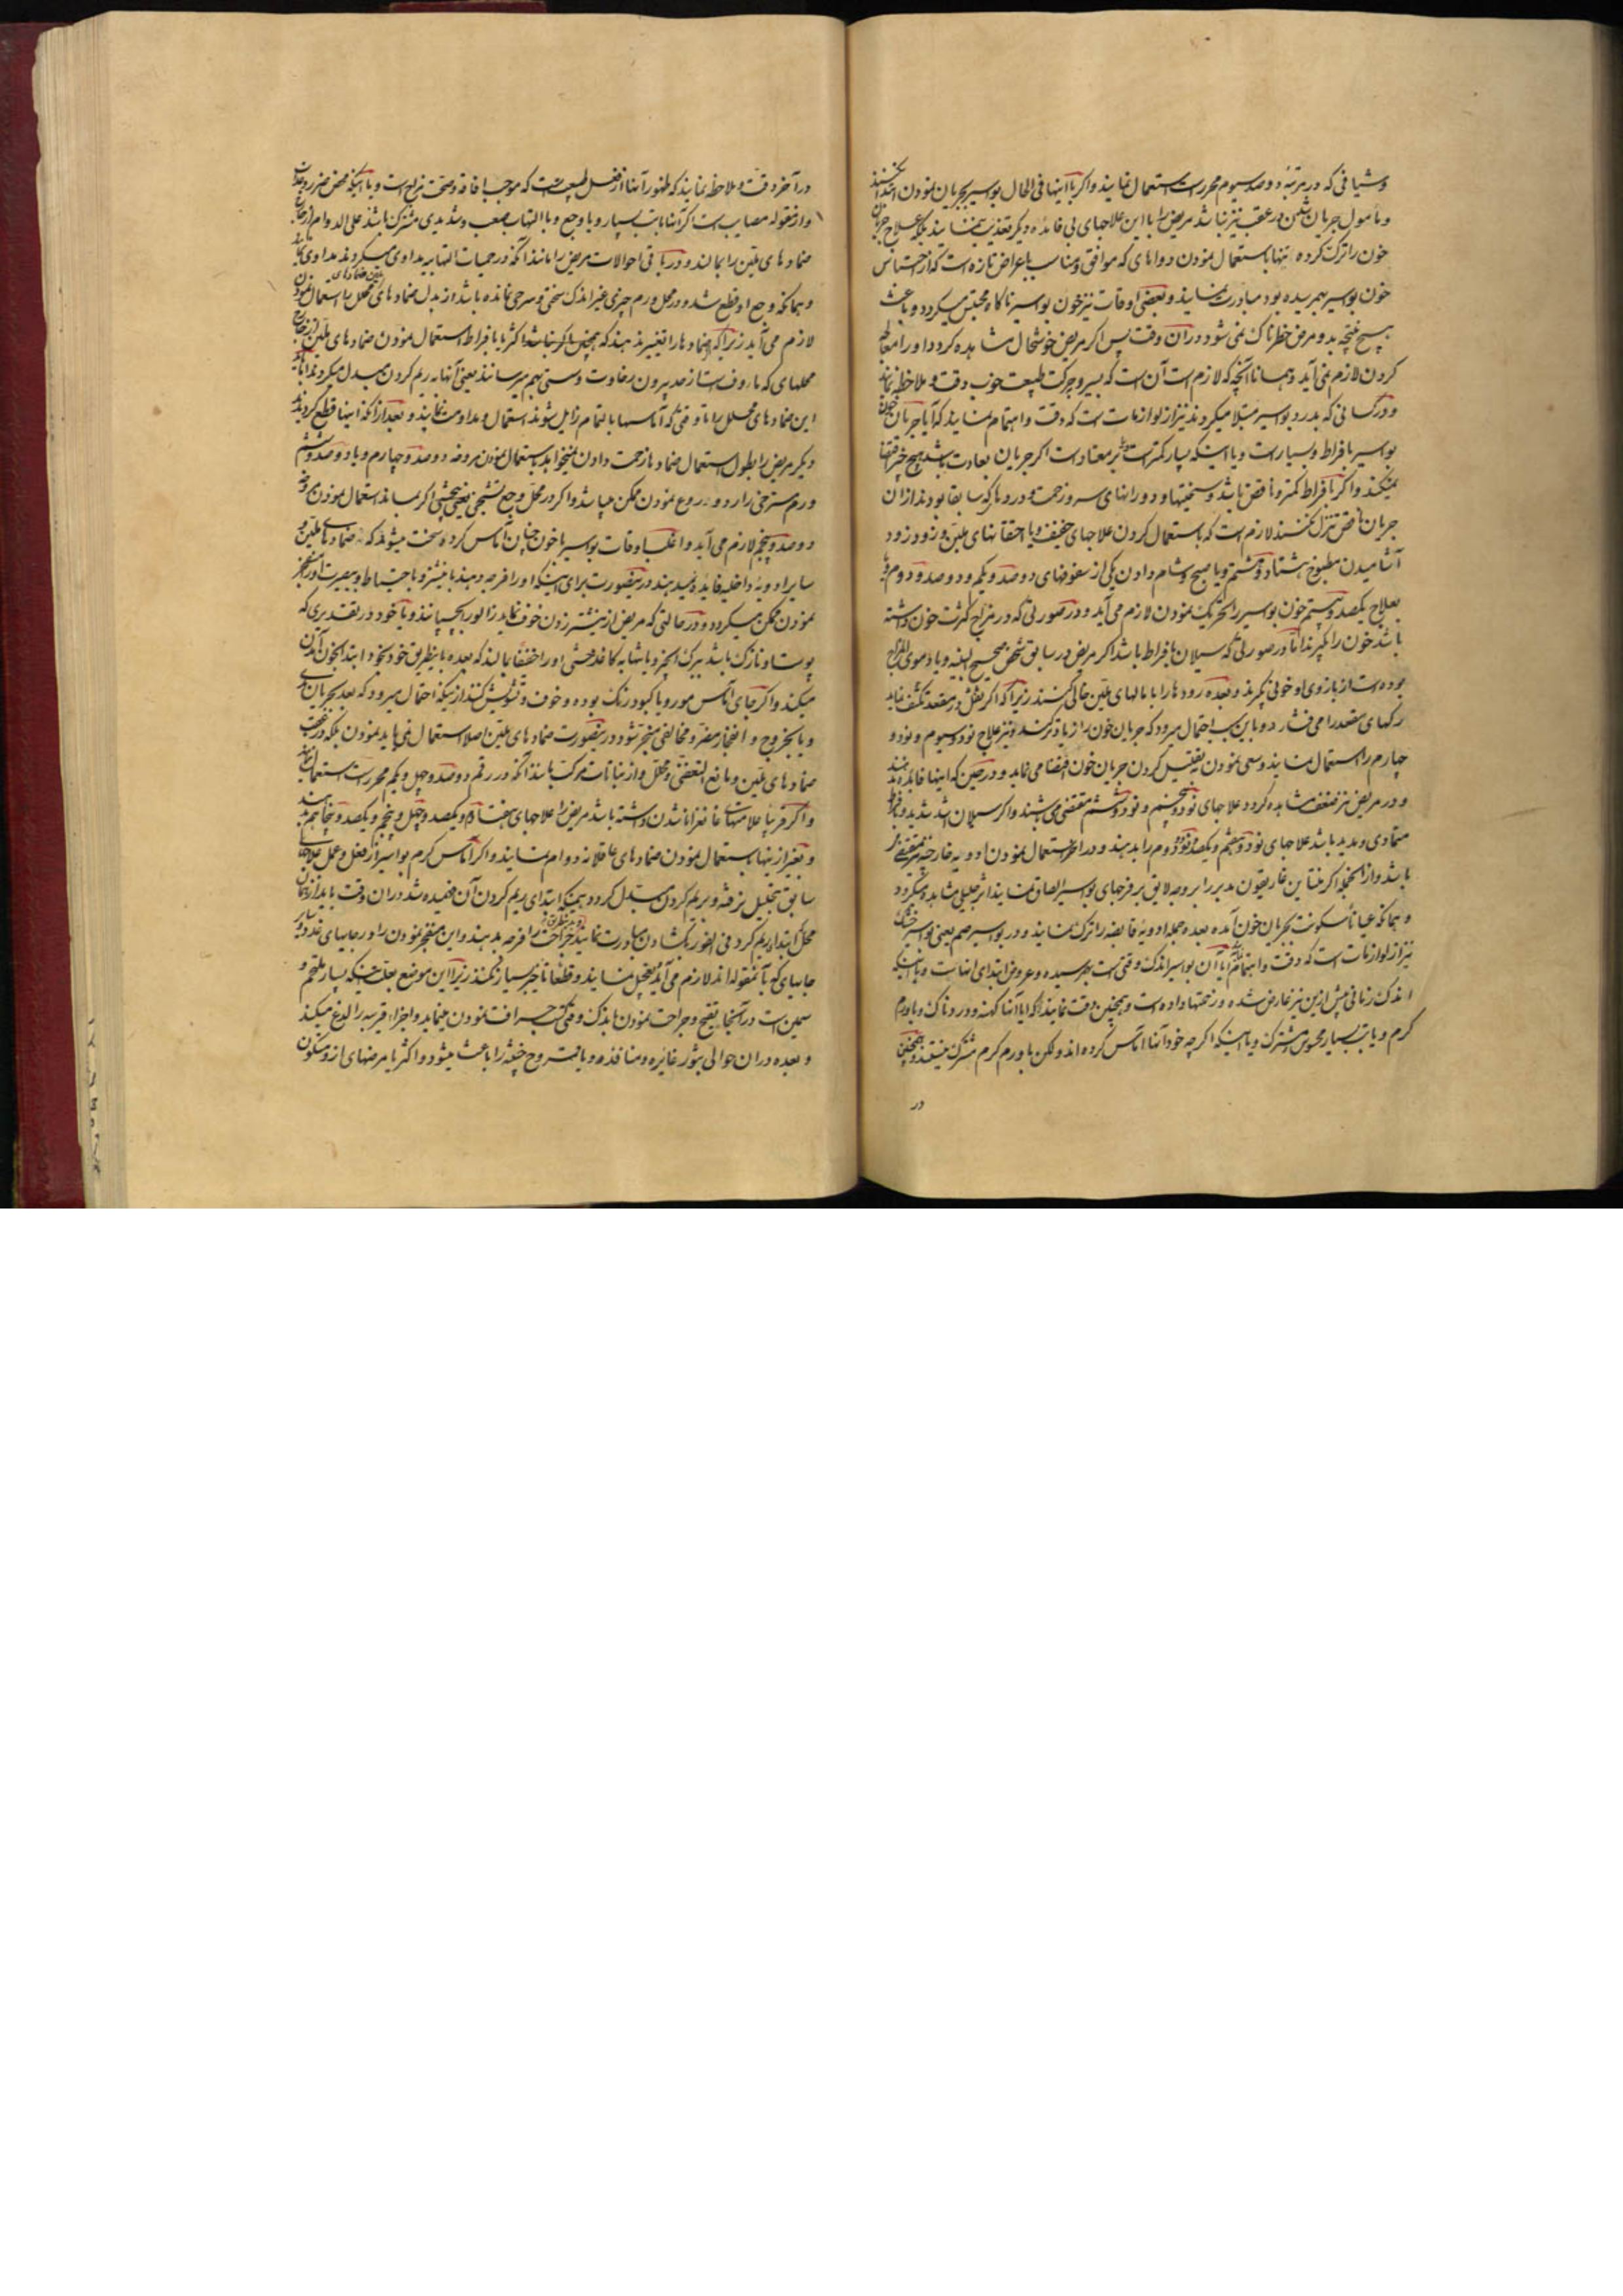 وشیافی که در مرتبهٔ دوصد و سیوم محررست استعمال نمایند و اکر با اینها فی الحال بواسیر بجریان نمودن ابتدا نکنند
و مأمول جریان شدن در عقب نیز نباشد مریض را با این علاجهای بی فائده دیکر تعذیب ننمایند بلکه علاج جریان
خون را ترک کرده تنها باستعمال نمودن دواهای که موافق و مناسب با عراض تازه است که از احتباس
خون بواسیر بهم رسیده بود مبادرت نمایند و بعضی اوقات نیز خون بواسیر ناکاه محتبس میکردد و باعث
هیچ نتیجه بد و مرض خطرناک نمی شود در آن وقت پس اکر مریض خوشحال مشاهده کردد او را معالجه
کردن لازم نمی آید و همانا آنچه که لازم است آن است که بسیر و حرکت طبیعت خوب دقت و ملاحظه نمایند
و در کسانی که بدرد بواسیر مبتلا میکردند نیز از لوازمات است که دقت و اهتمام نمایند که آیا جریان خون
بواسیر با فراط و بسیارست و یا اینکه بسیار کمترست و غیر معتادست اکر جریان بعادت باشد هیچ خبر اقتضا
نمیکند و اکر بافراط کمتر و ناقص باشد و سختیها و دورانهای سر و زحمت و دردها که سابقا بودند از آن
جریان ناقص تنزل نکنند لازم است که باستعمال کردن علاجهای خفیف و یا احتقانهای ملین و زود زود
آشامیدن مطبوخ هشتاد و هشتم و یا صبح و شام دادن یکی از سفوفهای دوصد و یکم و دوصد و دوم و یا
بعلاج یکصد و بیستم خون بواسیر را تحریک نمودن لازم می آید و در صورتی که در مزاج کثرت خون داشته
باشد خون را بکیرند اما در صورتی که سیلان بافراط باشد اکر مریض در سابق شخص صحیح البنیه و یا دموی المزاج
بوده است از بازوی او خونی بکیرند و بعده رودها را با مالهای ملین خالی کنند زیرا که اکر ثقل در مقعد تکثف نماید
رکهای مقعد را می فشارد و باین سبب احتمال میرود که جریان خون را زیاده کند و نیز علاج نود و سیوم و نود و
چهارم را استعمال نمایند و سعی نمودن به تقلیل کردن جریان خون اقتضا می نماید و در حین که اینها فایده ندهند
و در مریض نیز ضعف مشاهده کردد علاجهای نود و پنجم و نود و ششم مقتضی می شوند و اکر سیلان اشد شدید و بافراط
متمادی و مدید باشد علاجهای نود و هفتم و یکصد و نود و دوم را بدهند و در آخر استعمال نمودن ادویه خارجیه نیز مقتضی
باشد و از آنجمله اکر بنتاین غاریقون مدبر را بر وجه لایق بر فرجهای بواسیر الصاق نمایند اثر جلیلی مشاهد میکردد
و همانکه عیانا سکونت بجریان خون آمده بعده جمله ادویهٔ قابضه را ترک نمایند و در بواسیر صم یعنی بواسیر خشک
نیز از لوازمات است که دقت و اهتمام کنند آیا آن بواسیر اندک وقتی است بهم رسیده و عروض ابتدای آنهاست و یا اینکه
اندک زمانی پیش ازین نیز عارض شده و زحمتها داده است و همچنین دقت نمایند که آیا آنها کهنه و دردناک و یا ورم
کرم و یا تب بسیار محسوس مشترک و یا اینکه اکر چه خود آنها آماس کرده اند ولکن با ورم کرم مشترک نیستند و همچنین
در
در آخر دقت و ملاحظه نمایند که ظهور آنها از فضل طبیعت است که موجب افاقه و صحت مزاج است و یا اینکه محض ضرر و علت
و از مقوله مصایب است اکر آنها با تب بسیار و با وجع و با التهاب صعب و شدیدی مشترک باشند علی الدوام از خارج
ضمادهای ملین را بمالند و در باقی احوالات مریض را مانند آنکه در حمیات التهابیه مداوی میکردند مداوی نمایند
و همانکه وجع او قطع شد و در محل ورم چیزی غیر اندک سختی و سرخی نمانده باشد از بدل ضمادهای ملین ضمادهای محلل را استعمال نمودن
لازم می آید زیرا که ضمادها را تغییر ندهند که همچنین باکر نباشد اکثریا بافراط استعمال نمودن ضمادهای ملین از خارج
محلهای که ماروف است از حد بیرون رخاوت و سستی بهم میرسانند یعنی آنها به ریم کردن مبدل میکردند اما باید
این ضمادهای محلل را تا وقتی که آماسها بالتمام زایل شوند استعمال و مداومت نمایند و بعد از آنکه اینها قطع کردند
دیکر مریض را بطول استعمال ضماد باز زحمت دادن نمیخواهد باستعمال نمودن مروخه دوصد و چهارم و یا دوصد و ششم
ورم مسترخی را رد و ردع نمودن ممکن میباشد و اکر در محل وجع تشنجی یعنی چنشی اکر بماند استعمال نمودن مروخه
دوصد و پنجم لازم می آید و اغلب اوقات بواسیر با خون چنان آماس کرده و سخت میشوند که نه ضمادهای ملین و
سایر ادویهٔ داخلیه فایده نمیدهند درینصورت برای اینکه او را فرجه دهند با نیشتر و با احتیاط و بصیرت او را منفجر
نمودن ممکن میکردد و در حالتی که مریض از نیشتر زدن خوف نماید زالو را بچسپانند و یا خود در تقدیری که
پوست او نازک باشد ببرک انجیر و یا مشابه کاغذ خشنی او را خفیفا بمالند که بعده باینطریق خود بخود ابتدا بخون آمدن
میکند و اکر جای آماس مورد و یا کبود رنک بوده و خوف و تشویش کنند از اینکه احتمال میرود که بعد بجریان ریم
و یا بخروج و انفجار مضر و مخالفی منجر شود درینصورت ضمادهای ملین اصلا استعمال نمی باید نمودن بلکه در عقب
ضمادهای ملین و مانع التعفن و محلل و از نباتات مرکب مانند آنکه در رقم دوصد و چهل و یکم محررست استعمال نمایند
و اکر قریبا علامتهای غانغرانا شدن داشته باشد مریض را علاجهای هفتادم و یکصد و چهل و پنجم و یکصد و پنجاهم بدهند
و بغیر از اینها باستعمال نمودن ضمادهای عاقلانه دوام نمایند و اکر آماس کرم بواسیر از فعل و عمل علاجهای
سابق بتحلیل نرفته و بریم کردن مبدل کردد و همینکه ابتدای ریم کردن آن فهمیده شد در آن وقت باید از همان
محل ابتدا بریم کرد فی الفور بکشادن مبادرت نمایند و بدین طریق جراحت را فرجه بدهند و این منفجر نمودن را در جایهای غددی و سایر
جایهای که باین مقوله اند لازم می آید تعجیل نمایند و قطعا تأخیر بسیار نکنند زیرا این موضع بعلت اینکه بسیار ملتحم و
سمین است در آنجا بتقیح و جراحت نمودن باندک وقتی کسب آفت نمودن مینماید و اجزاء قریبه را لدغ میکند
و بعده در آن حوالی بثور غائره و منافذه و یا قروح خبیثه را باعث میشود و اکثریا مرضهای از و متکون